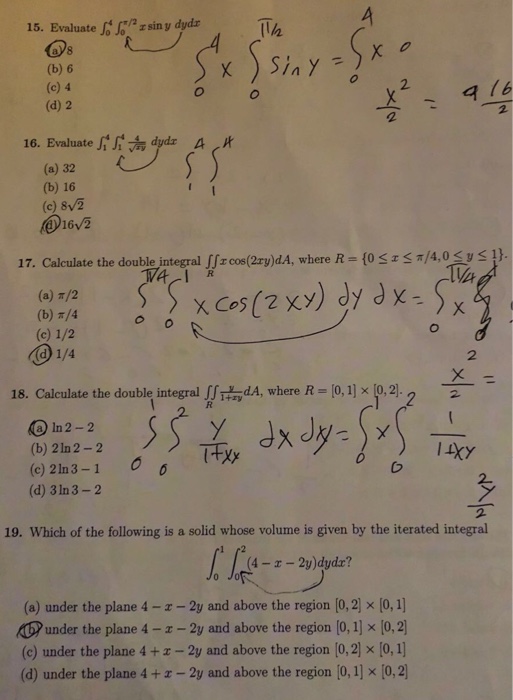 15. Evaluate ∫₀⁴ ∫₀^{π/2} x sin y dydx
(a) 8
(b) 6
(c) 4
(d) 2
∫₀⁴ x ∫₀^{π/2} sin y = ∫₀⁴ x
x²/2 = 16/2
16. Evaluate ∫₁⁴ ∫₁⁴ 4/√xy dydx
(a) 32
(b) 16
(c) 8√2
(d) 16√2
∫₁⁴ ∫₁⁴
17. Calculate the double integral ∬_R x cos(2xy)dA, where R = {0 ≤ x ≤ π/4, 0 ≤ y ≤ 1}.
(a) π/2
(b) π/4
(c) 1/2
(d) 1/4
∫₀^{π/4} ∫₀¹ x cos(2xy) dy dx = ∫₀^{π/4} x
x²/2 =
18. Calculate the double integral ∬_R y/(1+xy) dA, where R = [0, 1] × [0, 2].
(a) ln 2 − 2
(b) 2 ln 2 − 2
(c) 2 ln 3 − 1
(d) 3 ln 3 − 2
∫₀¹ ∫₀² y/(1+xy) dx dy = ∫₀¹ x ∫₀² 1/(1+xy)
y²/2
19. Which of the following is a solid whose volume is given by the iterated integral
∫₀¹ ∫₀² (4 − x − 2y)dydx?
(a) under the plane 4 − x − 2y and above the region [0, 2] × [0, 1]
(b) under the plane 4 − x − 2y and above the region [0, 1] × [0, 2]
(c) under the plane 4 + x − 2y and above the region [0, 2] × [0, 1]
(d) under the plane 4 + x − 2y and above the region [0, 1] × [0, 2]